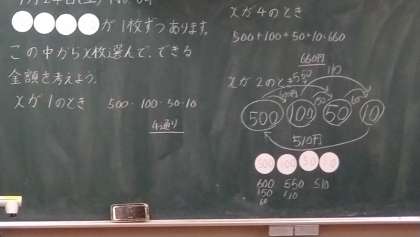 が1枚ずつあります。
この中からX枚選んで、できる
金額を考えよう。
Xが1のとき 500・100・50・10
4通り
Xが4のとき
500+100+50+10=660
660円
Xが2のとき
550
110
500 100 50 10
510円
600 550 510
150 110
60